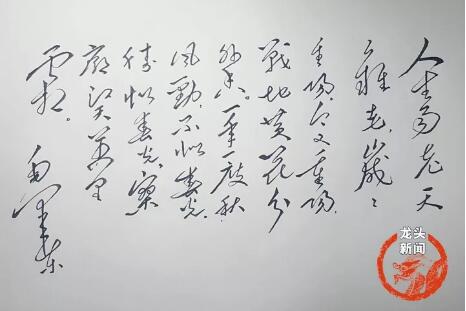 人生易老天
難老,歲々
重陽。今又重陽,
戰地黄花分
外香。一年一度秋
風勁,不似春光。
勝似春光,寥
廓江天萬里
霜。
毛泽东
龙头
新闻